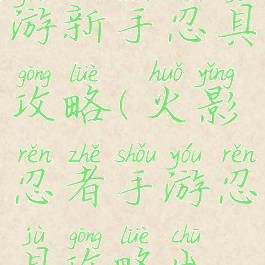 游新手忍具
gōng lüè huǒ yǐng
攻略(火影
rěn zhě shǒu yóu rěn
忍者手游忍
jù gōng lüè chū
具攻略出